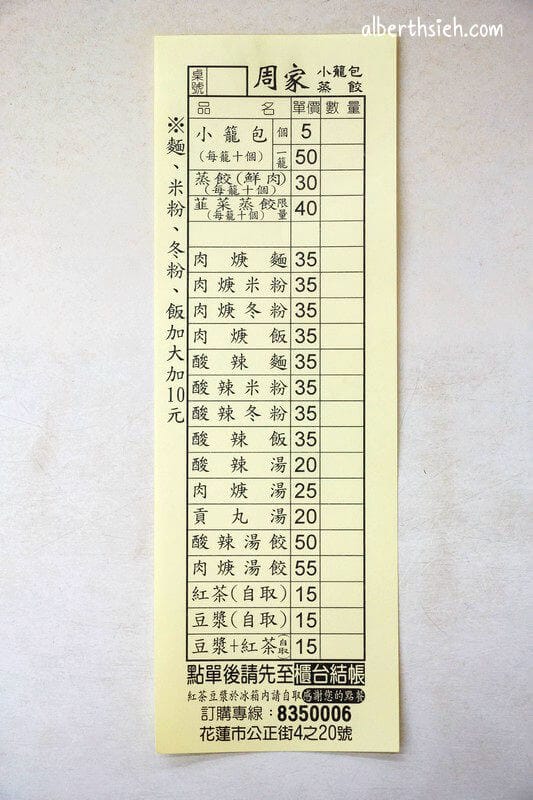 alberthsieh.com
桌號 周家 小籠包 蒸餃
品名 單價 數量
小籠包(每籠十個) 個 5
一籠 50
蒸餃(鮮肉)(每籠十個) 30
韮菜蒸餃(每籠十個)限量 40
肉焿麵 35
肉焿米粉 35
肉焿冬粉 35
肉焿飯 35
酸辣麵 35
酸辣米粉 35
酸辣冬粉 35
酸辣飯 35
酸辣湯 20
肉焿湯 25
貢丸湯 20
酸辣湯餃 50
肉焿湯餃 55
紅茶(自取) 15
豆漿(自取) 15
豆漿+紅茶(自取) 15
※麵、米粉、冬粉、飯加大加10元
點單後請先至櫃台結帳
紅茶豆漿於冰箱內請自取 感謝您的點餐
訂購專線：8350006
花蓮市公正街4之20號